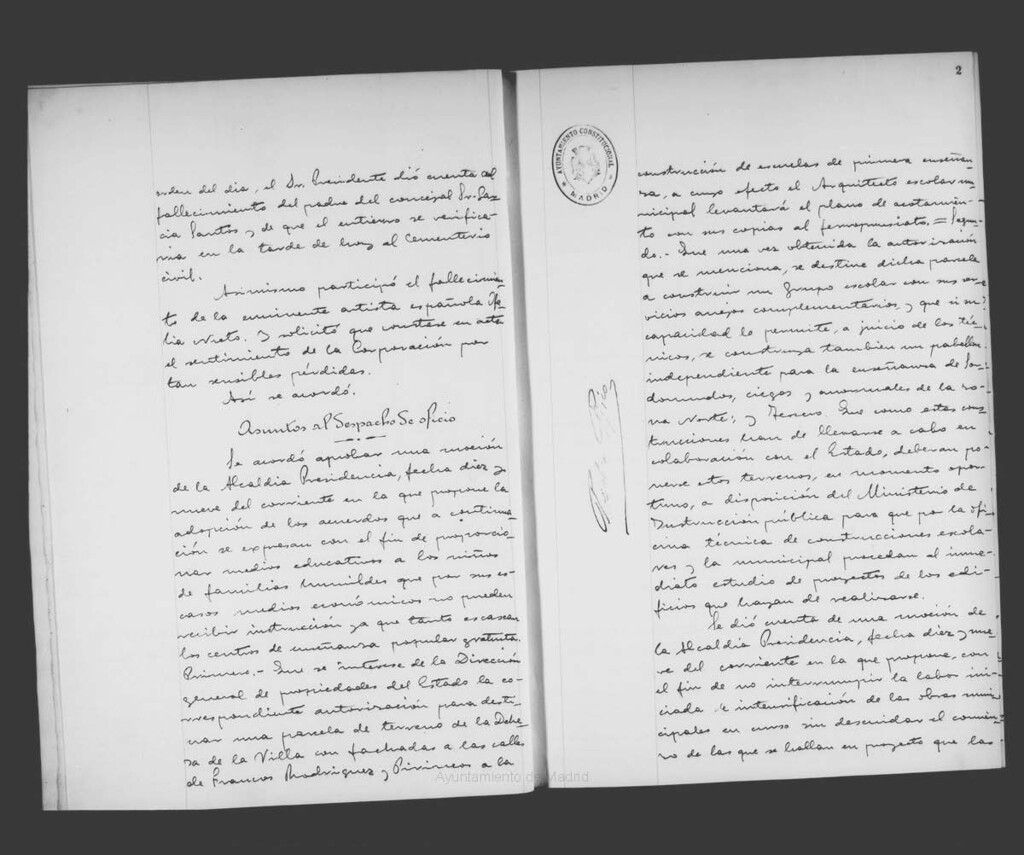 orden del dia, el Sr. Presidente dió cuenta del
fallecimiento del padre del concejal Sr. Gar
cia Santos y de que el entierro se verifica-
ria en la tarde de hoy al Cementerio
civil.
Asimismo participó el fallecimien
to de la eminente artista española Ofe
lia Nieto. Y solicitó que constase en acta
el sentimiento de la Corporación por
tan sensibles pérdidas.
Asi se acordó.
Asuntos al Despacho de oficio
Se acordó aprobar una moción
de la Alcaldia Presidencia, fecha diez y
nueve del corriente en la que propone la
adopción de los acuerdos que a continua
ción se expresan con el fin de proporcio-
nar medios educativos a los niños
de familias humildes que por sus es-
casos medios económicos no pueden
recibir instrucción ya que tanto escasean
los centros de enseñanza popular gratuita.
Primero.- Que se interese de la Dirección
general de propiedades del Estado la co-
rrespondiente autorización para desti-
nar una parcela de terreno de la Dehe
sa de la Villa con fachadas a las calles
de Francos Rodriguez y Pirineos a la
Ayuntamiento de Madrid
2
AYUNTAMIENTO CONSTITUCIONAL
MADRID
construcción de escuelas de primera enseñan
za, a cuyo efecto el Arquitecto escolar mu
nicipal levantará el plano de acotamien-
to con sus copias al ferroprusiato. = Segun
do. - Que una vez obtenida la autorización
que se menciona, se destine dicha parcela
a construir un Grupo escolar con sus ser
vicios anejos complementarios, y que si su
capacidad lo permite, a juicio de los téc-
nicos, se construya tambien un pabellon
independiente para la enseñanza de Sor
domudos, ciegos y anormales de la zo-
na Norte; y Tercero. Que como estas cons
trucciones han de llevarse a cabo en
colaboración con el Estado, deberan po-
nerse estos terrenos, en momento opor
tuno, a disposición del Ministerio de
Instrucción pública para que por la ofi
cina técnica de construcciones escola-
res y la municipal procedan al inme-
diato estudio de proyectos de los edi-
ficios que hayan de realizarse.
Se dió cuenta de una moción de
la Alcaldia Presidencia, fecha diez y nue
ve del corriente en la que propone, con
el fin de no interrumpir la labor ini-
ciada e intensificación de las obras muni
cipales en curso sin descuidar el comien
zo de las que se hallan en proyecto que las